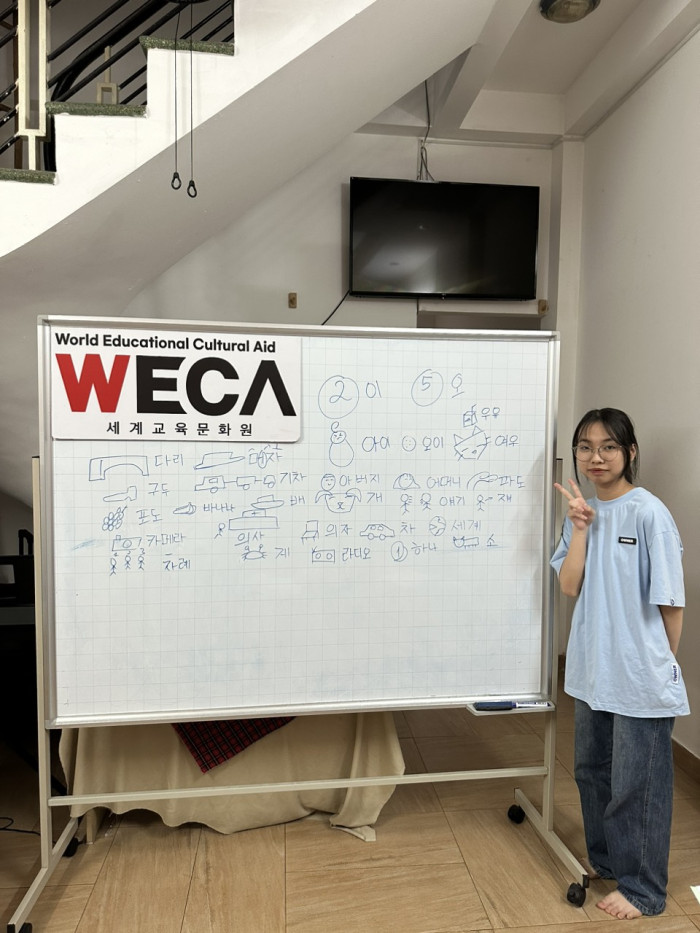 World Educational Cultural Aid
WECA
세계교육문화원
2 이 5 오
우유
아이 오이 여우
다리 모자
기차 아버지 어머니 파도
구두 바나나 배 개 얘기 쟤
포도
의사 의자 차 세계
카메라
차례 게 라디오 1 하나 소